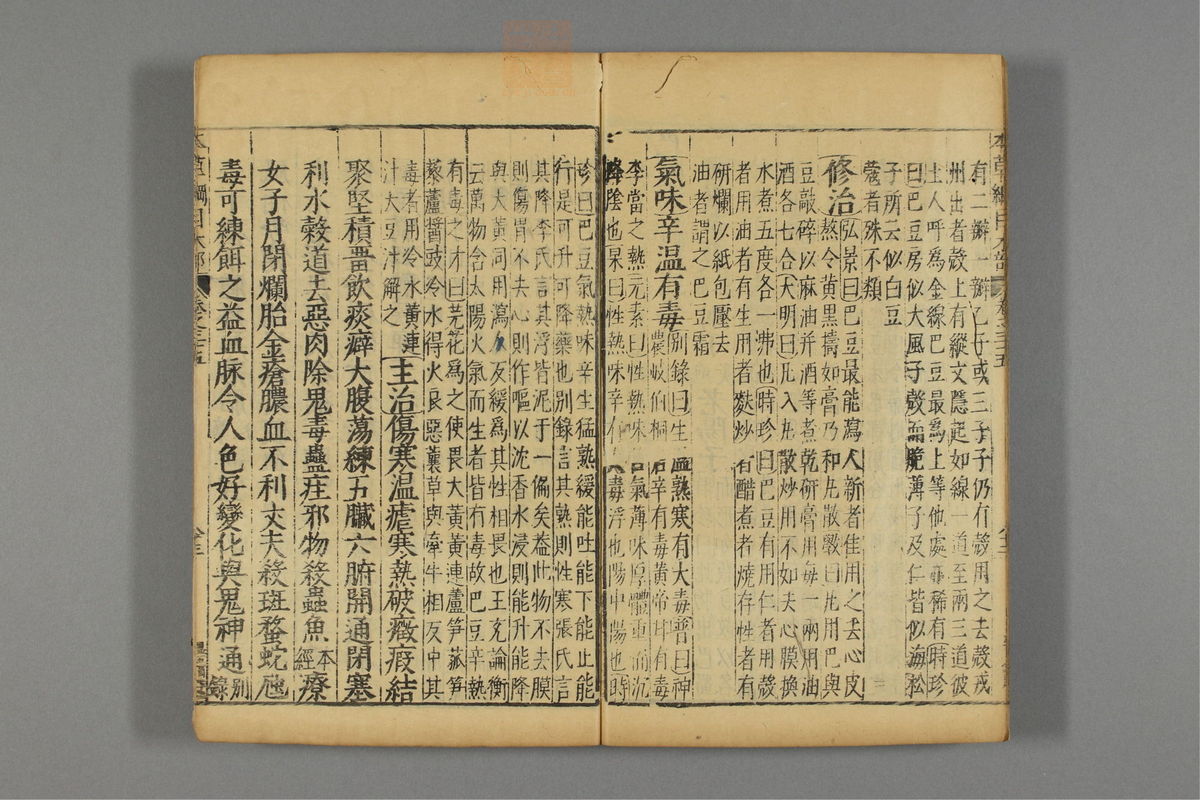 有二瓣一瓣乙子或三子子仍有殼用之去殼戎
州出者殼上有縱文隱起如線一道至兩三道彼
土人呼為金線巴豆最為上等他處亦稀有時珍
曰巴豆房似大風子殼而脆薄子及仁皆似海松
子所云似白豆
蔻者殊不類
修治弘景曰巴豆最能瀉人新者佳用之去心皮
熬令黃黑擣如膏乃和丸散斅曰凡用巴與
豆敲碎以麻油并酒等煮乾研膏用每一兩用油
酒各七合大明曰凡入丸散炒用不如去心膜換
水煮五度各一沸也時珍曰巴豆有用仁者用殼
者用油者有生用者麩炒者醋煮者燒存性者有
研爛以紙包壓去
油者謂之巴豆霜
氣味辛溫有毒別錄曰生溫熟寒有大毒普曰神
農岐伯桐君辛有毒黃帝甘有毒
李當之熱元素曰性熱味苦氣薄味厚體重而沉
降陰也杲曰性熱味辛有大毒浮也陽中陽也時
珍曰巴豆氣熱味辛生猛熟緩能吐能下能止能
行是可升可降藥也別錄言其熟則性寒張氏言
其降李氏言其浮皆泥于一偏矣蓋此物不去膜
則傷胃不去心則作嘔以沈香水浸則能升能降
與大黃同用瀉人反緩為其性相畏也王充論衡
云萬物含太陽火氣而生者皆有毒故巴豆辛熱
有毒之才曰芫花為之使畏大黃黃連蘆笋菰笋
藜蘆醬豉冷水得火良惡蘘草與牽牛相反中其
毒者用冷水黃連
汁大豆汁解之
主治傷寒溫瘧寒熱破癥瘕結
聚堅積留飲痰癖大腹蕩練五臟六腑開通閉塞
利水穀道去惡肉除鬼毒蠱疰邪物殺蟲魚本經療
女子月閉爛胎金瘡膿血不利丈夫殺斑蝥蛇虺
毒可練餌之益血脉令人色好變化與鬼神通別錄
本草綱目木部
卷之三十五